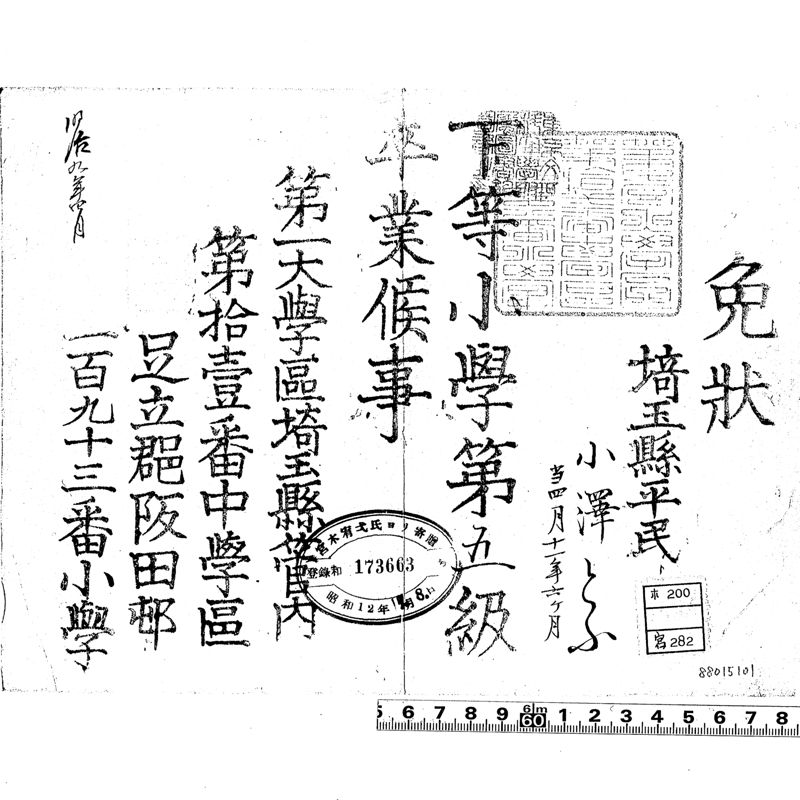 免狀
埼玉縣平民
小澤とふ
当四月十一年六ヶ月
下等小學第五級
卒業候事
第一大學區埼玉縣管內
第拾壹番中學區
足立郡阪田邨
一百九十三番小學
明治九年 月
宮木宥弌氏ヨリ寄贈
登錄和 173663
昭和12年 月8日
ホ 200
寫 282
88015101
5 6 7 8 9 6m 60 1 2 3 4 5 6 7 8